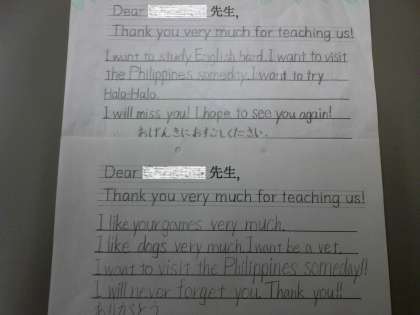 Dear 先生,
Thank you very much for teaching us!
I want to study English hard. I want to visit
the Philippines someday. I want to try
Halo-Halo.
I will miss you! I hope to see you again!
おげんきにおすごしください。
Dear 先生,
Thank you very much for teaching us!
I like your games very much.
I like dogs very much. I want be a vet.
I want to visit the Philippines someday!!
I will never forget you. Thank you!!
ありがとう